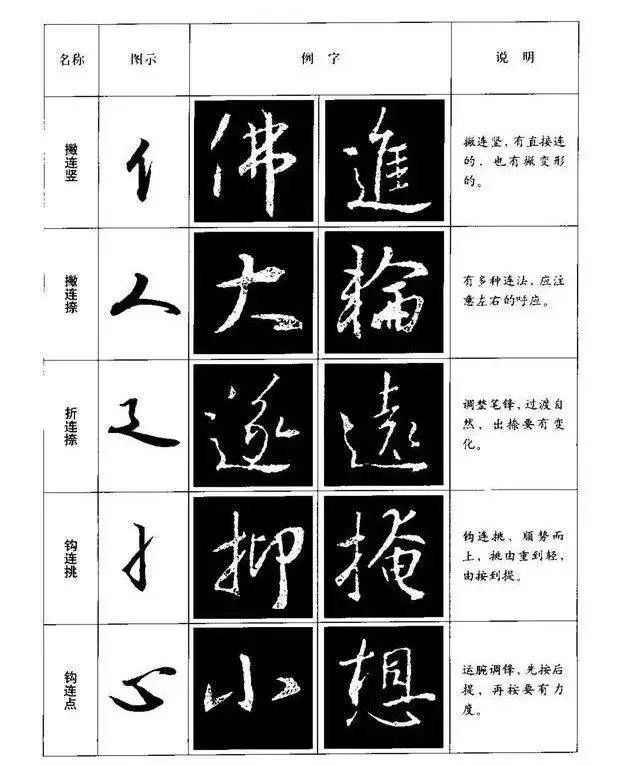 名称 图示 例 字 说 明
撇连竖 亻 佛 進 撇连竖，有直接连
的，也有撇变形
的。
撇连捺 人 大 輪 有多种连法，应注
意左右的呼应。
折连捺 遂 遠 调整笔锋，过渡自
然，出捺要有变
化。
钩连挑 扌 抑 掩 钩连挑，顺势而
上，挑由重到轻，
由按到提。
钩连点 心 小 想 运腕调锋，先按后
提，再按要有力
度。